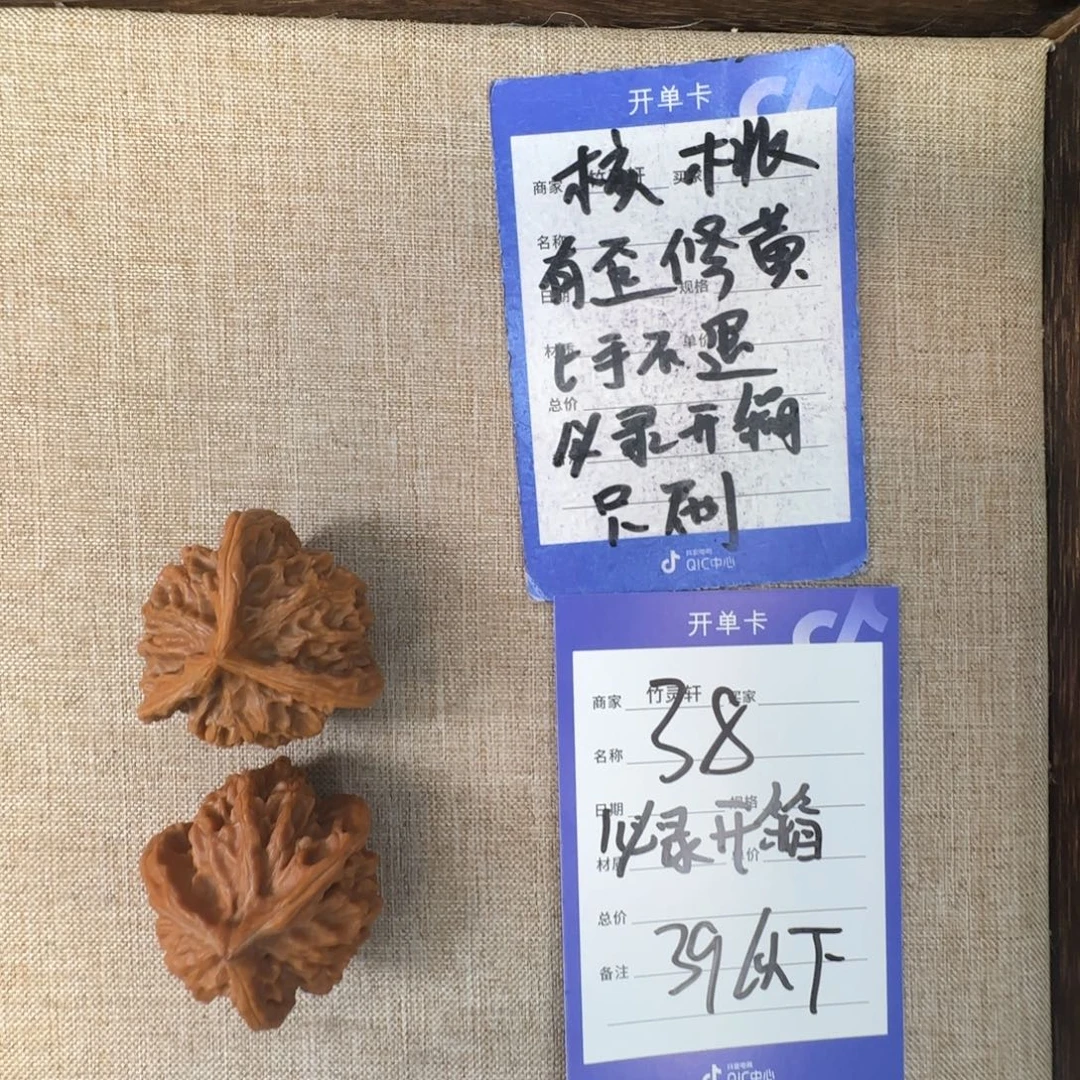 开单卡
核桃
商家 竹灵轩 买家
有歪修黄
名称
日期 规格
上手不退
材质 单价
总价
必录开箱
只刷
抖音电商
QIC中心
开单卡
商家 竹灵轩 买家
38
名称
日期 规格
必录开箱
材质 单价
总价
39以下
备注
抖音电商
QIC中心